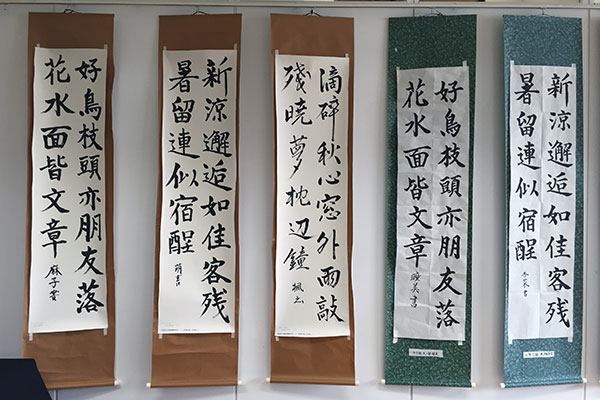 好鳥枝頭亦朋友落
花水面皆文章
麻子書
新涼邂逅如佳客残
暑留連似宿醒
滴碎秋心窓外雨敲
殘暁夢枕辺鐘
好鳥枝頭亦朋友落
花水面皆文章
新涼邂逅如佳客残
暑留連似宿醒